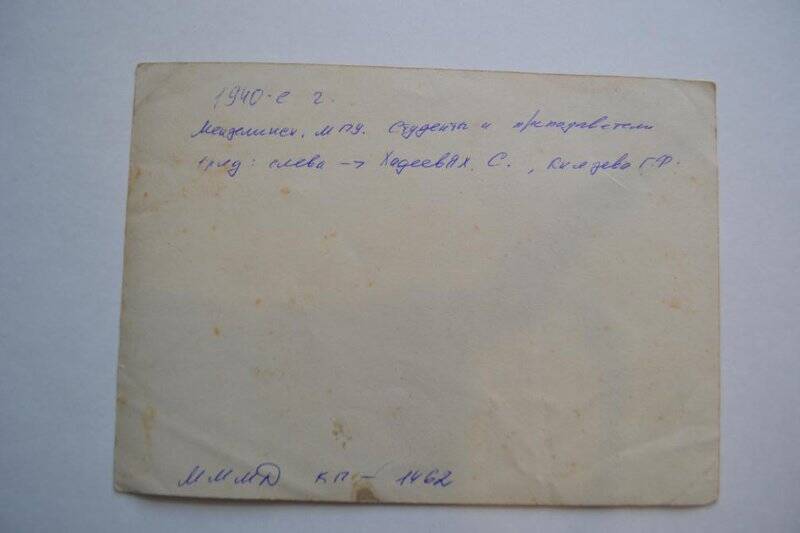 1940-е г.
Мензелинск, МПУ. Студенты и преподаватели
1 ряд: слева → Хадеев С.,
МММД КП - 1462